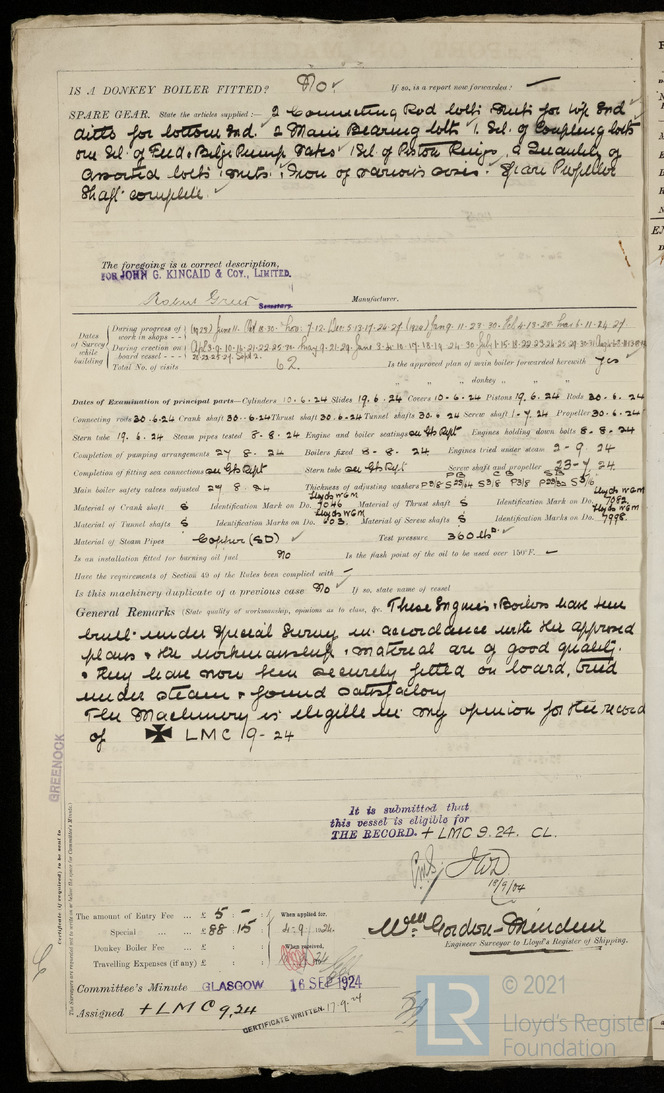 IS A DONKEY BOILER FITTED? No If so, is a report now forwarded? —
SPARE GEAR. State the articles supplied:— 2 Connecting Rod bolts & nuts for top End
ditto for bottom End. 2 Main Bearing bolts 1 Set of Coupling bolts
one Set of Feed & Bilge Pump Valves 1 Set of Piston Rings, a Quantity of
assorted bolts & nuts & Iron of various sizes. Spare Propeller
Shaft complete
The foregoing is a correct description,
FOR JOHN G. KINCAID & COY., LIMITED.
Robert Green Secretary. Manufacturer.
Dates of Survey while building
During progress of work in shops - - (1923) June 11. Nov: 7.12. Dec. 5.13.17.24.27 (1924) Jan 9. 11. 23. 30. Feb
During erection on board vessel - - -
Total No. of visits 62. Is the approved plan of main boiler forwarded herewith Yes
" " " donkey " " "
Dates of Examination of principal parts—Cylinders 10.6.24 Slides 19.6.24 Covers 10.6.24 Pistons 19.6.24 Rods 30.6.24
Connecting rods 30.6.24 Crank shaft 30.6.24 Thrust shaft 30.6.24 Tunnel shafts 30.6.24 Screw shaft 1-7.24 Propeller 30.6.24
Stern tube 19.6.24 Steam pipes tested 8-8.24 Engine and boiler seatings on Gls Rept Engines holding down bolts 8-8-24
Completion of pumping arrangements 27 8.24 Boilers fixed 8-8.24 Engines tried under steam 2-9 24
Completion of fitting sea connections on Gls Rept Stern tube on Gls Rept Screw shaft and propeller 23-7 24
Main boiler safety valves adjusted 27 8.24 Thickness of adjusting washers
Material of Crank shaft S Identification Mark on Do. Lloyds WGM 7046 Material of Thrust shaft S Identification Mark on Do. Lloyds WGM 7082
Material of Tunnel shafts S Identification Marks on Do. Material of Screw shafts S Identification Marks on Do. Lloyds WGM 7998
Material of Steam Pipes Copper (SD) Test pressure 360 lbs
Is an installation fitted for burning oil fuel No Is the flash point of the oil to be used over 150°F. —
Have the requirements of Section 49 of the Rules been complied with —
Is this machinery duplicate of a previous case No If so, state name of vessel
General Remarks (State quality of workmanship, opinions as to class, &c. These Engines & Boilers have been
built under Special Survey in accordance with the approved
plans & the workmanship & material are of good quality.
& they have now been securely fitted on board, tried
under steam & found satisfactory
The Machinery is eligible in my opinion for the record
of ✠ LMC 9-24
It is submitted that
this vessel is eligible for
THE RECORD. + LMC 9.24. CL.
GREENOCK
Certificate (if required) to be sent to
The amount of Entry Fee ... £ 5 : - : When applied for,
Special ... ... £ 88 15 : 4.9.1924
Donkey Boiler Fee ... £ : : When received,
Travelling Expenses (if any) £ : :
Wm Gordon-
Engineer Surveyor to Lloyd's Register of Shipping.
Committee's Minute GLASGOW 16 SEP 1924
Assigned + LMC 9,24
CERTIFICATE WRITTEN 17.9.24
LR
© 2021
Lloyd's Register
Foundation